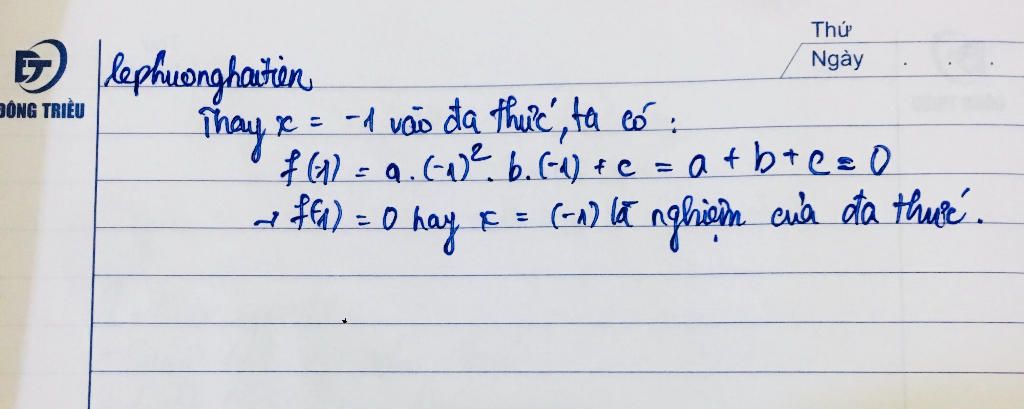 Thứ
Ngày . . .
ĐÔNG TRIỀU
lephuonghaitien
Thay x = -1 vào đa thức, ta có :
f(-1) = a.(-1)². b.(-1) + c = a + b + c = 0
→ f(-1) = 0 hay x = (-1) là nghiệm của đa thức.